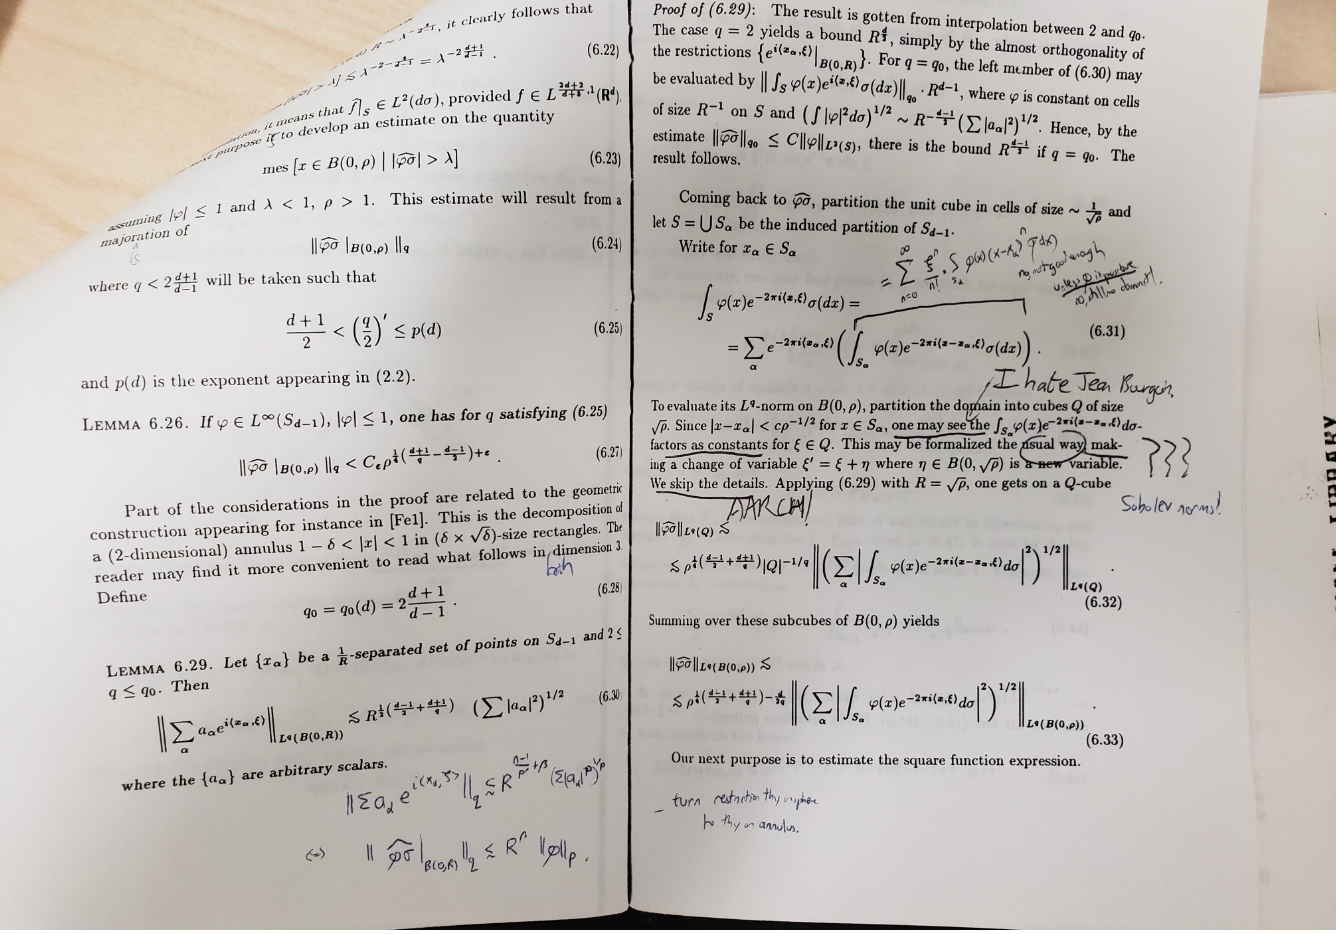 it clearly follows that
= λ^{-2\frac{d+1}{d-1}} . (6.22)
it means that f̂|_S ∈ L²(dσ), provided f ∈ L^{\frac{2d+2}{d+3},1}(R^d).
purpose is to develop an estimate on the quantity
mes [x ∈ B(0,ρ) | |φσ̂| > λ] (6.23)
assuming |φ| ≤ 1 and λ < 1, ρ > 1. This estimate will result from a
majoration of
is
‖φσ̂ |_{B(0,ρ)} ‖_q (6.24)
where q < 2\frac{d+1}{d-1} will be taken such that
\frac{d+1}{2} < (\frac{q}{2})' ≤ p(d) (6.25)
and p(d) is the exponent appearing in (2.2).
LEMMA 6.26. If φ ∈ L^∞(S_{d-1}), |φ| ≤ 1, one has for q satisfying (6.25)
‖φσ̂ |_{B(0,ρ)} ‖_q < C_ε ρ^{\frac{1}{2}(\frac{d+1}{q} - \frac{d-1}{2})+ε} . (6.27)
Part of the considerations in the proof are related to the geometric
construction appearing for instance in [Fe1]. This is the decomposition of
a (2-dimensional) annulus 1 − δ < |x| < 1 in (δ × √δ)-size rectangles. The
reader may find it more convenient to read what follows in dimension 3.
both
Define
q₀ = q₀(d) = 2\frac{d+1}{d-1} . (6.28)
LEMMA 6.29. Let {x_α} be a \frac{1}{R}-separated set of points on S_{d-1} and 2 ≤
q ≤ q₀. Then
‖∑_α a_α e^{i⟨x_α,ξ⟩}‖_{L^q(B(0,R))} ≲ R^{\frac{1}{2}(\frac{d-1}{2}+\frac{d+1}{q})} (∑|a_α|²)^{1/2} (6.30)
where the {a_α} are arbitrary scalars.
‖∑a_α e^{i⟨x_α,ξ⟩}‖_q ≲ R^{\frac{n-1}{p'}+β} (∑|a_α|^p)^{1/p}
⇔ ‖φσ̂|_{B(0,R)}‖_q ≲ R^β ‖φ‖_p .
Proof of (6.29): The result is gotten from interpolation between 2 and q₀.
The case q = 2 yields a bound R^{\frac{d}{2}}, simply by the almost orthogonality of
the restrictions {e^{i⟨x_α,ξ⟩}|_{B(0,R)}}. For q = q₀, the left member of (6.30) may
be evaluated by ‖∫_S φ(x)e^{i⟨x,ξ⟩}σ(dx)‖_{q₀} · R^{d-1}, where φ is constant on cells
of size R^{-1} on S and (∫|φ|²dσ)^{1/2} ~ R^{-\frac{d-1}{2}}(∑|a_α|²)^{1/2}. Hence, by the
estimate ‖φσ̂‖_{q₀} ≤ C‖φ‖_{L²(S)}, there is the bound R^{\frac{d-1}{2}} if q = q₀. The
result follows.
Coming back to φσ̂, partition the unit cube in cells of size ~ \frac{1}{√ρ} and
let S = ⋃S_α be the induced partition of S_{d-1}.
Write for x_α ∈ S_α
= ∑_{n=0}^∞ \frac{ξ^n}{n!} · ∫_{S_α} φ(x)(x−x_α)^n σ(dx)
no, not good enough
unless φ is positive
no, still no
∫_S φ(x)e^{-2πi⟨x,ξ⟩}σ(dx) =
= ∑_α e^{-2πi⟨x_α,ξ⟩}(∫_{S_α} φ(x)e^{-2πi⟨x−x_α,ξ⟩}σ(dx)) . (6.31)
I hate Jean Burgain,
To evaluate its L^q-norm on B(0,ρ), partition the domain into cubes Q of size
√ρ. Since |x−x_α| < cρ^{-1/2} for x ∈ S_α, one may see the ∫_{S_α} φ(x)e^{-2πi⟨x−x_α,ξ⟩}dσ-
factors as constants for ξ ∈ Q. This may be formalized the usual way, mak-
ing a change of variable ξ' = ξ + η where η ∈ B(0,√ρ) is a new variable.
???
We skip the details. Applying (6.29) with R = √ρ, one gets on a Q-cube
AARCH!
Sobolev norms!
‖φσ̂‖_{L^q(Q)} ≲
≲ ρ^{\frac{1}{4}(\frac{d-1}{2}+\frac{d+1}{q})}|Q|^{-1/q} ‖(∑_α |∫_{S_α} φ(x)e^{-2πi⟨x−x_α,ξ⟩}dσ|²)^{1/2}‖_{L^q(Q)} .
(6.32)
Summing over these subcubes of B(0,ρ) yields
‖φσ̂‖_{L^q(B(0,ρ))} ≲
≲ ρ^{\frac{1}{4}(\frac{d-1}{2}+\frac{d+1}{q})-\frac{d}{2q}} ‖(∑_α |∫_{S_α} φ(x)e^{-2πi⟨x,ξ⟩}dσ|²)^{1/2}‖_{L^q(B(0,ρ))} .
(6.33)
Our next purpose is to estimate the square function expression.
– turn restriction thy on sphere
to thy on annulus.
LIBRARY